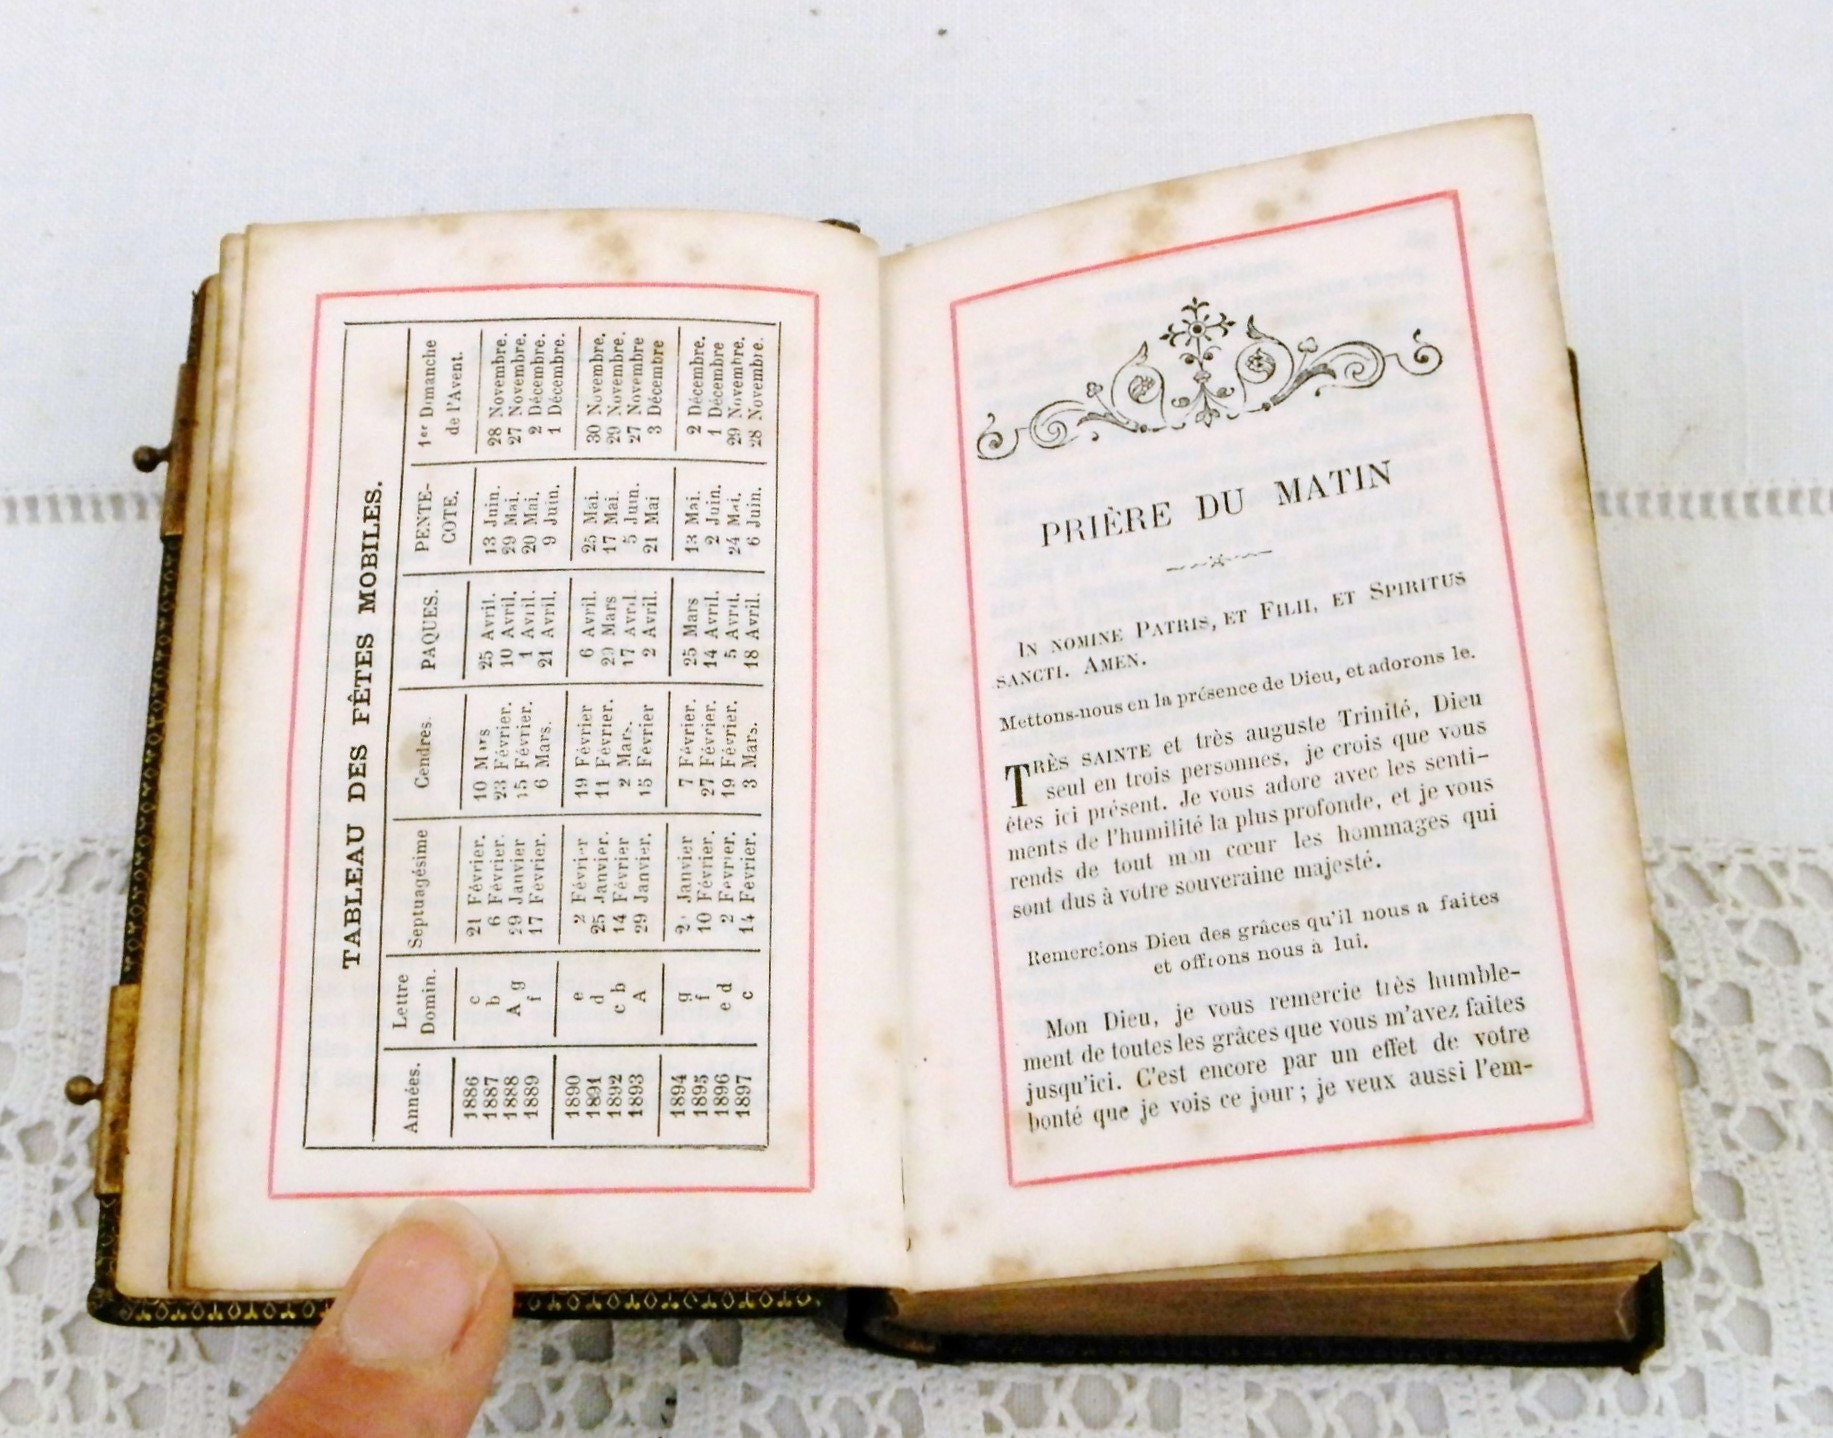 TABLEAU DES FÊTES MOBILES.
Années. Lettre Domin. Septuagésime Cendres. PAQUES. PENTE-COTE. 1er Dimanche de l'Avent.
1886 c 21 Février. 10 Mars 25 Avril. 13 Juin. 28 Novembre.
1887 b 6 Février. 23 Février. 10 Avril. 29 Mai. 27 Novembre.
1888 A g 29 Janvier 15 Février. 1 Avril. 20 Mai. 2 Décembre.
1889 f 17 Fevrier. 6 Mars. 21 Avril. 9 Juin. 1 Décembre.
1890 e 2 Février 19 Février 6 Avril. 25 Mai. 30 Novembre.
1891 d 25 Janvier. 11 Février. 29 Mars 17 Mai. 29 Novembre.
1892 c b 14 Février 2 Mars. 17 Avril 5 Juin. 27 Novembre
1893 A 29 Janvier. 15 Fevrier 2 Avril. 21 Mai 3 Décembre
1894 g Janvier 7 Février. 25 Mars 13 Mai. 2 Décembre.
1895 f 10 Février. 27 Février. 14 Avril. 2 Juin. 1 Décembre
1896 e d 2 Fevrier. 19 Février. 5 Avril. 24 Mai. 29 Novembre.
1897 c 14 Fevrier. 3 Mars. 18 Avril. 6 Juin. 28 Novembre.
PRIÈRE DU MATIN
IN NOMINE PATRIS, ET FILII, ET SPIRITUS
SANCTI. AMEN.
Mettons-nous en la présence de Dieu, et adorons le.
TRÈS SAINTE et très auguste Trinité, Dieu
seul en trois personnes, je crois que vous
êtes ici présent. Je vous adore avec les senti-
ments de l'humilité la plus profonde, et je vous
rends de tout mon cœur les hommages qui
sont dus à votre souveraine majesté.
Remercions Dieu des grâces qu'il nous a faites
et offrons nous à lui.
Mon Dieu, je vous remercie très humble-
ment de toutes les grâces que vous m'avez faites
jusqu'ici. C'est encore par un effet de votre
bonté que je vois ce jour ; je veux aussi l'em-